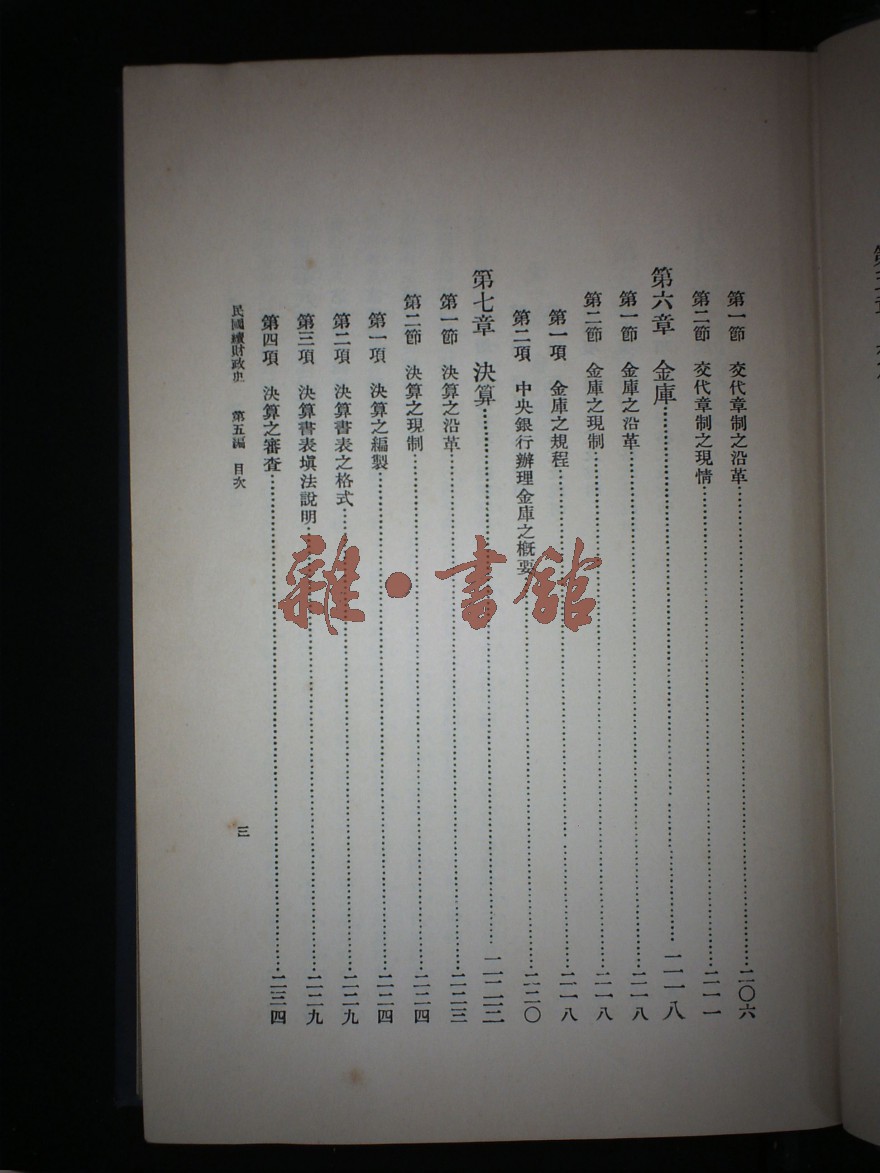 第一節 交代章制之沿革……二〇六
第二節 交代章制之現情……二一一
第六章 金庫……二一八
第一節 金庫之沿革……二一八
第二節 金庫之現制……二一八
第一項 金庫之規程……二一八
第二項 中央銀行辦理金庫之槪要……二二〇
第七章 決算……二二三
第一節 決算之沿革……二二三
第二節 決算之現制……二二四
第一項 決算之編製……二二四
第二項 決算書表之格式……二二九
第三項 決算書表塡法說明……二二九
第四項 決算之審査……二三四
民國續財政史 第五編 目次
三
雜·書館